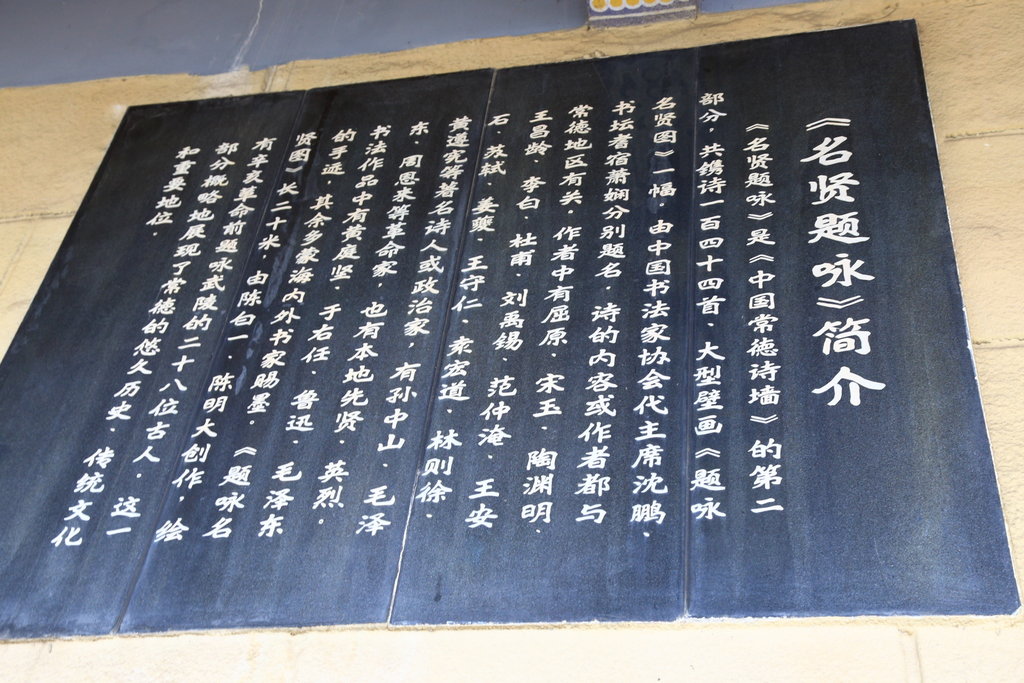 《名贤题咏》简介
《名贤题咏》是《中国常德诗墙》的第二
部分，共镌诗一百四十四首、大型壁画《题咏
名贤图》一幅。由中国书法家协会代主席沈鹏、
书坛耆宿萧娴分别题名，诗的内容或作者都与
常德地区有关。作者中有屈原、宋玉、陶渊明、
王昌龄、李白、杜甫、刘禹锡、范仲淹、王安
石、苏轼、姜夔、王守仁、袁宏道、林则徐、
黄遵宪等著名诗人或政治家，有孙中山、毛泽
东、周恩来等革命家，也有本地先贤、英烈。
书法作品中有黄庭坚、于右任、鲁迅、毛泽东
的手迹，其余多蒙海内外书家赐墨。《题咏名
贤图》长二十米，由陈白一、陈明大创作，绘
有辛亥革命前题咏武陵的二十八位古人。这一
部分概略地展现了常德的悠久历史、传统文化
和重要地位。